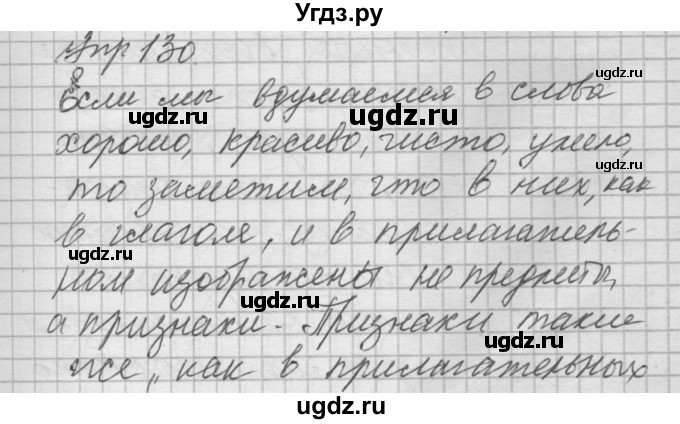 Угдз.ру
Упр 130
Если мы вдумаемся в слова
хорошо, красиво, чисто, умело,
то заметим, что в них, как
в глаголе, и в прилагатель-
ном изображены не предметы,
а признаки. Признаки такие
же, как в прилагательных
ugdz.ru
ugdz.ru
ugdz.ru
ugdz.ru
ugdz.ru
ugdz.ru
ugdz.ru
ugdz.ru
ugdz.ru